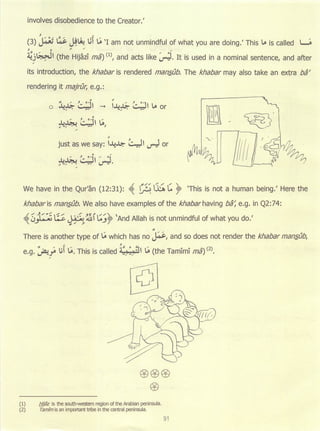 involves disobedience to the Creator.'
(3) مَا أَنَا بِغَافِلٍ عَمَّا تَفْعَلُ 'I am not unmindful of what you are doing.' This مَا is called مَا
الْحِجَازِيَّةُ (the Hijâzî mâ) (1), and acts like لَيْسَ. It is used in a nominal sentence, and after
its introduction, the khabar is rendered manṣûb. The khabar may also take an extra bâ'
rendering it majrûr, e.g.:
o الْبَيْتُ جَدِيدٌ → مَا الْبَيْتُ جَدِيدًا or
مَا الْبَيْتُ بِجَدِيدٍ
just as we say: لَيْسَ الْبَيْتُ جَدِيدًا or
لَيْسَ الْبَيْتُ بِجَدِيدٍ.
We have in the Qur'ân (12:31): ﴿ مَا هَذَا بَشَرًا ﴾ 'This is not a human being.' Here the
khabar is manṣûb. We also have examples of the khabar having bâ', e.g. in Q2:74:
﴿وَمَا اللَّهُ بِغَافِلٍ عَمَّا تَعْمَلُونَ﴾ 'And Allah is not unmindful of what you do.'
There is another type of مَا which has no عَمَل, and so does not render the khabar manṣûb,
e.g. مَا أَنَا مَرِيضٌ. This is called مَا التَّمِيمِيَّةُ (the Tamîmî mâ) (2).
(1) Hijâz is the south-western region of the Arabian peninsula.
(2) Tamîm is an important tribe in the central peninsula.
91